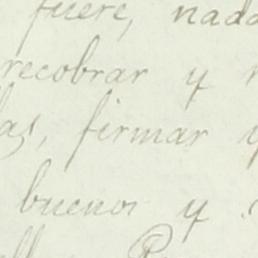 fuere, nada
recobrar y
las, firmar y
buenos y